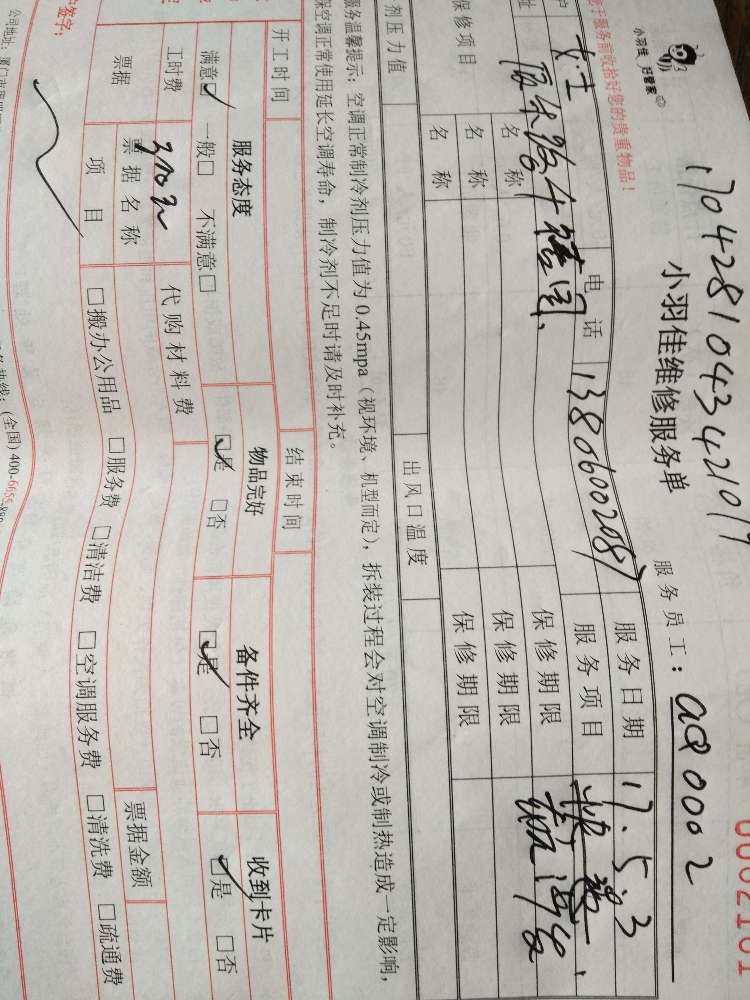 1704281043421017
小羽佳 好管家
小羽佳维修服务单
服务员工：aQ0002
服务前收拾好您的贵重物品！
女士 电话 13806600208 服务日期 17.5.3
服务项目
名称 保修期限
保修项目 名称 保修期限
名称 保修期限
剂压力值 出风口温度
服务温馨提示：空调正常制冷剂压力值为0.45mpa（视环境、机型而定），拆装过程会对空调制冷或制热造成一定影响，
保空调正常使用延长空调寿命，制冷剂不足时请及时补充。
开工时间 结束时间
服务态度 物品完好 备件齐全 收到卡片
满意☑ 一般□ 不满意□ ☑是 □否 ☑是 □否 ☑是 □否
工时费 370元 代购材料费
票据 票据名称 票据金额
项目 □搬办公用品 □服务费 □清洁费 □空调服务费 □清洗费 □疏通费
签字：
(全国)400-6655